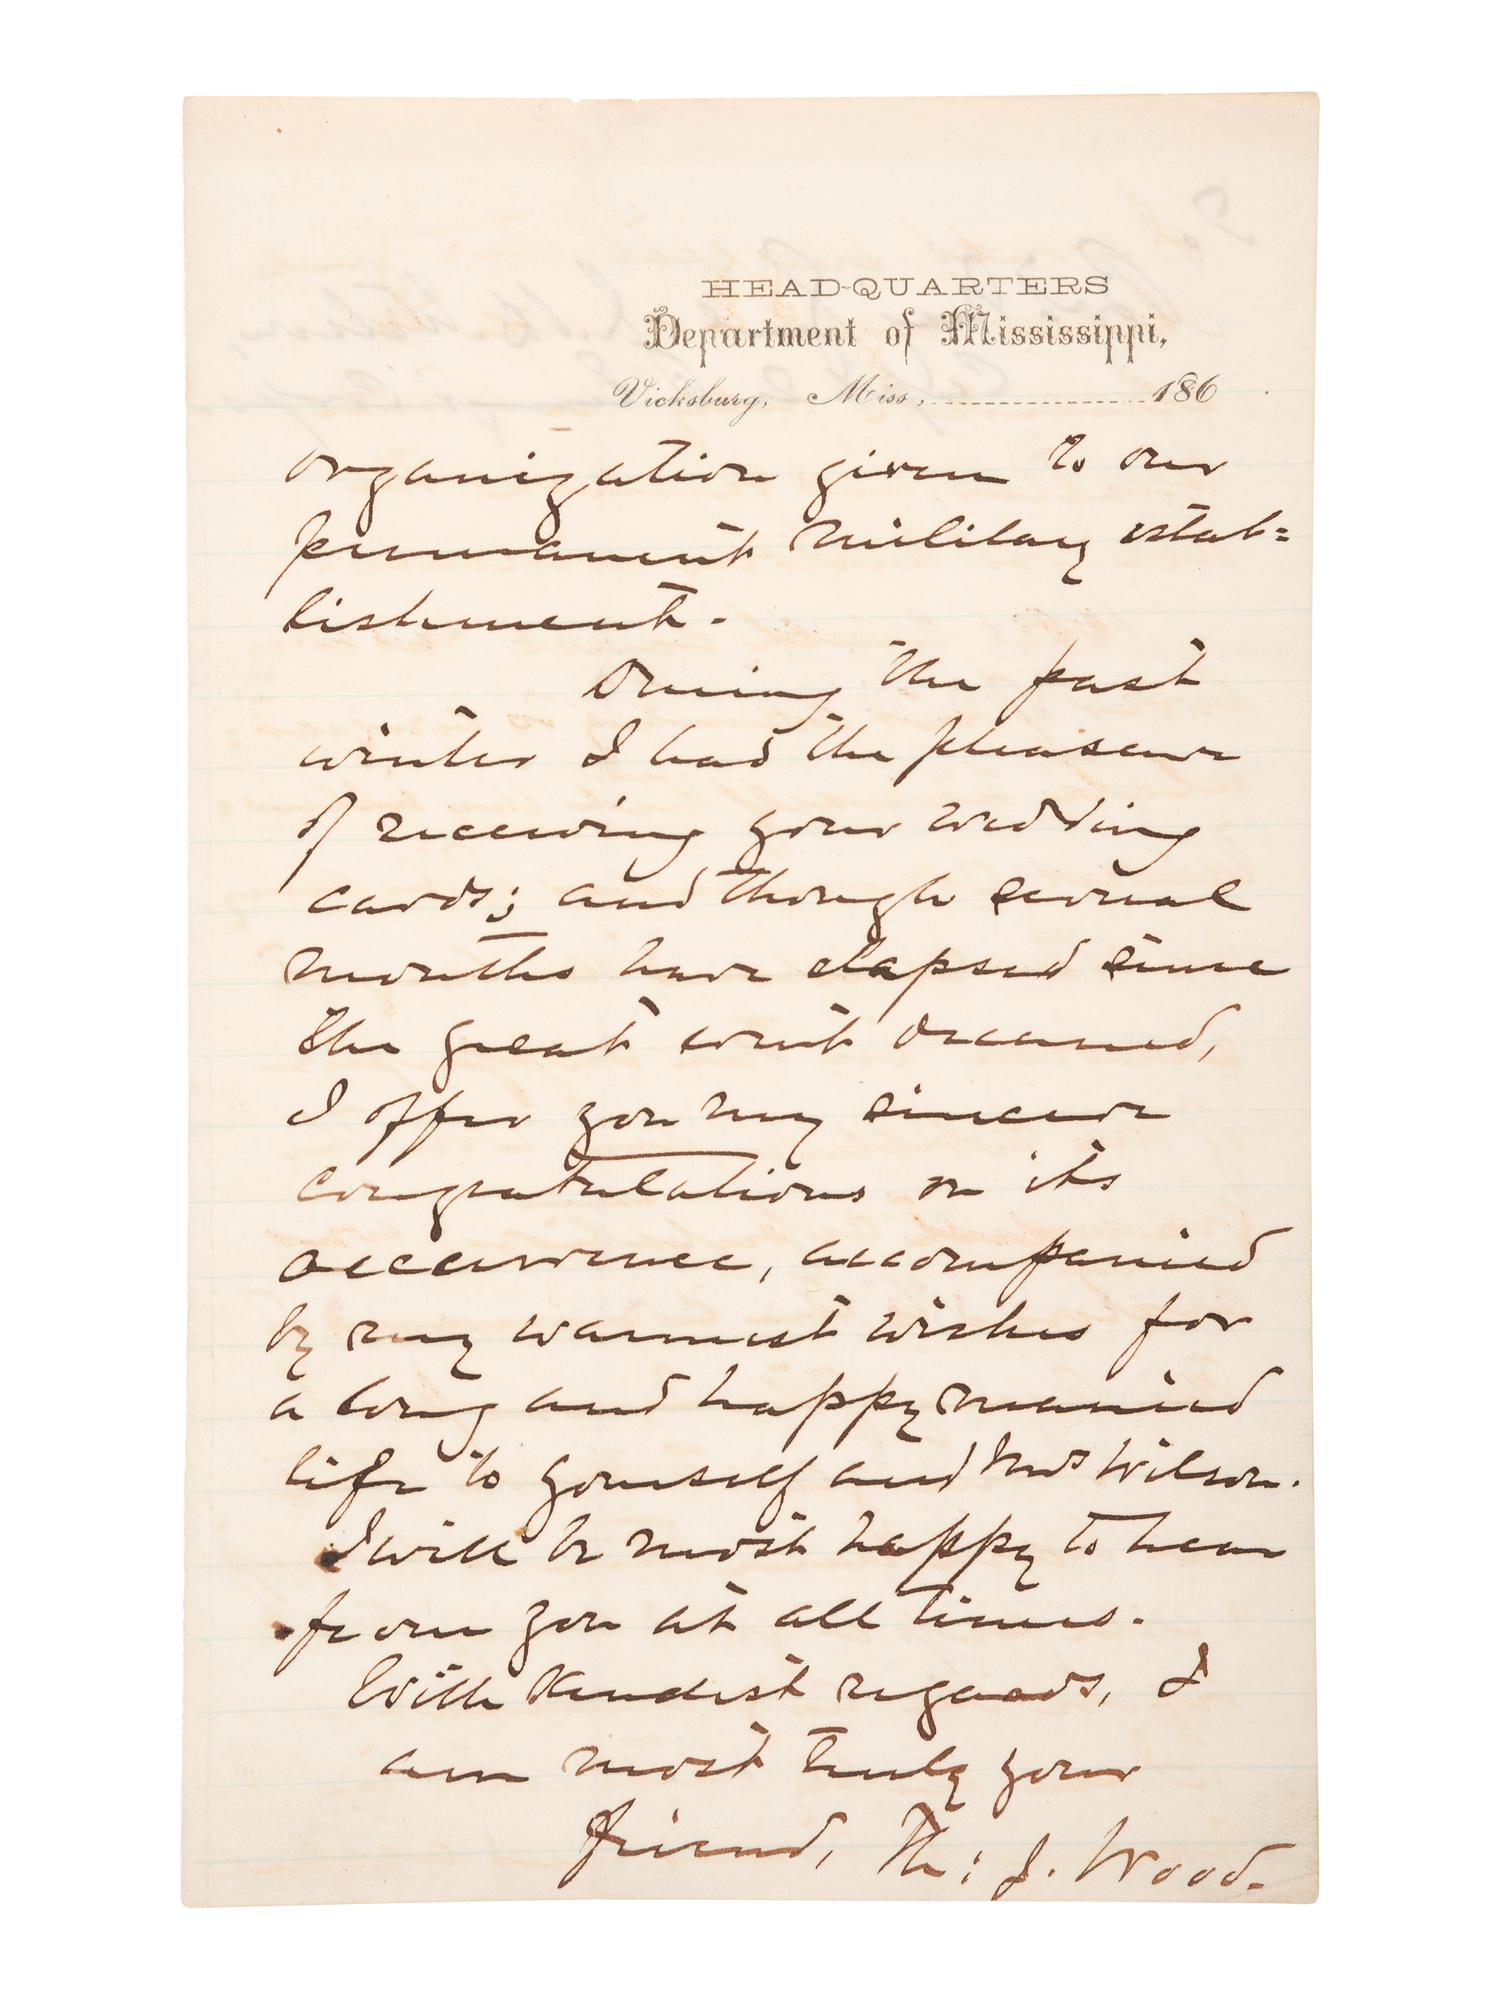 HEAD-QUARTERS
Department of Mississippi,
Vicksburg, Miss, 186
organization given to our
permanent military estab=
lishment.
During the past
winter I had the pleasure
of receiving your wedding
cards; and though several
months have elapsed since
the great event occurred,
I offer you my sincere
congratulations on its
occurrence, accompanied
by my warmest wishes for
a long and happy married
life to yourself and Mrs Wilson.
I will be most happy to hear
from you at all times.
With kindest regards, I
am most truly your
friend, Th: J. Wood.